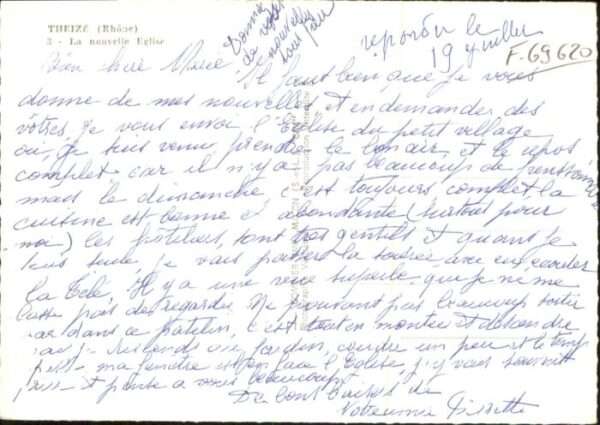 THEIZÉ (Rhône)
3 - La nouvelle Eglise
Donne
de vos
nouvelles
sous peu
reponsu le
19 juillet
F-69620
Bien chère Marie
Il faut bien que je vous
donne de mes nouvelles et en demander des
vôtres, je vous envoi l'Eglise du petit village
où je suis venu prendre le bon air et le repos
complet car il n'y a pas beaucoup de
mais le dimanche est toujours complet, la
cuisine est bonne et abondante (surtout pour
moi) les hôteliers sont très gentils et quand je
suis seule je vais passer la soirée avec eux écouter
la télé. Il y a une vue superbe que je ne me
lasse pas de regarder Ne pouvant pas beaucoup sortir
car dans ce patelin, c'est tout en montée et descendre
au jardin, coudre un peu et le temps
passe ma fenêtre est en face l'Eglise j'y vais souvent
et pense à vous beaucoup
De bons baisers de
Votre amie